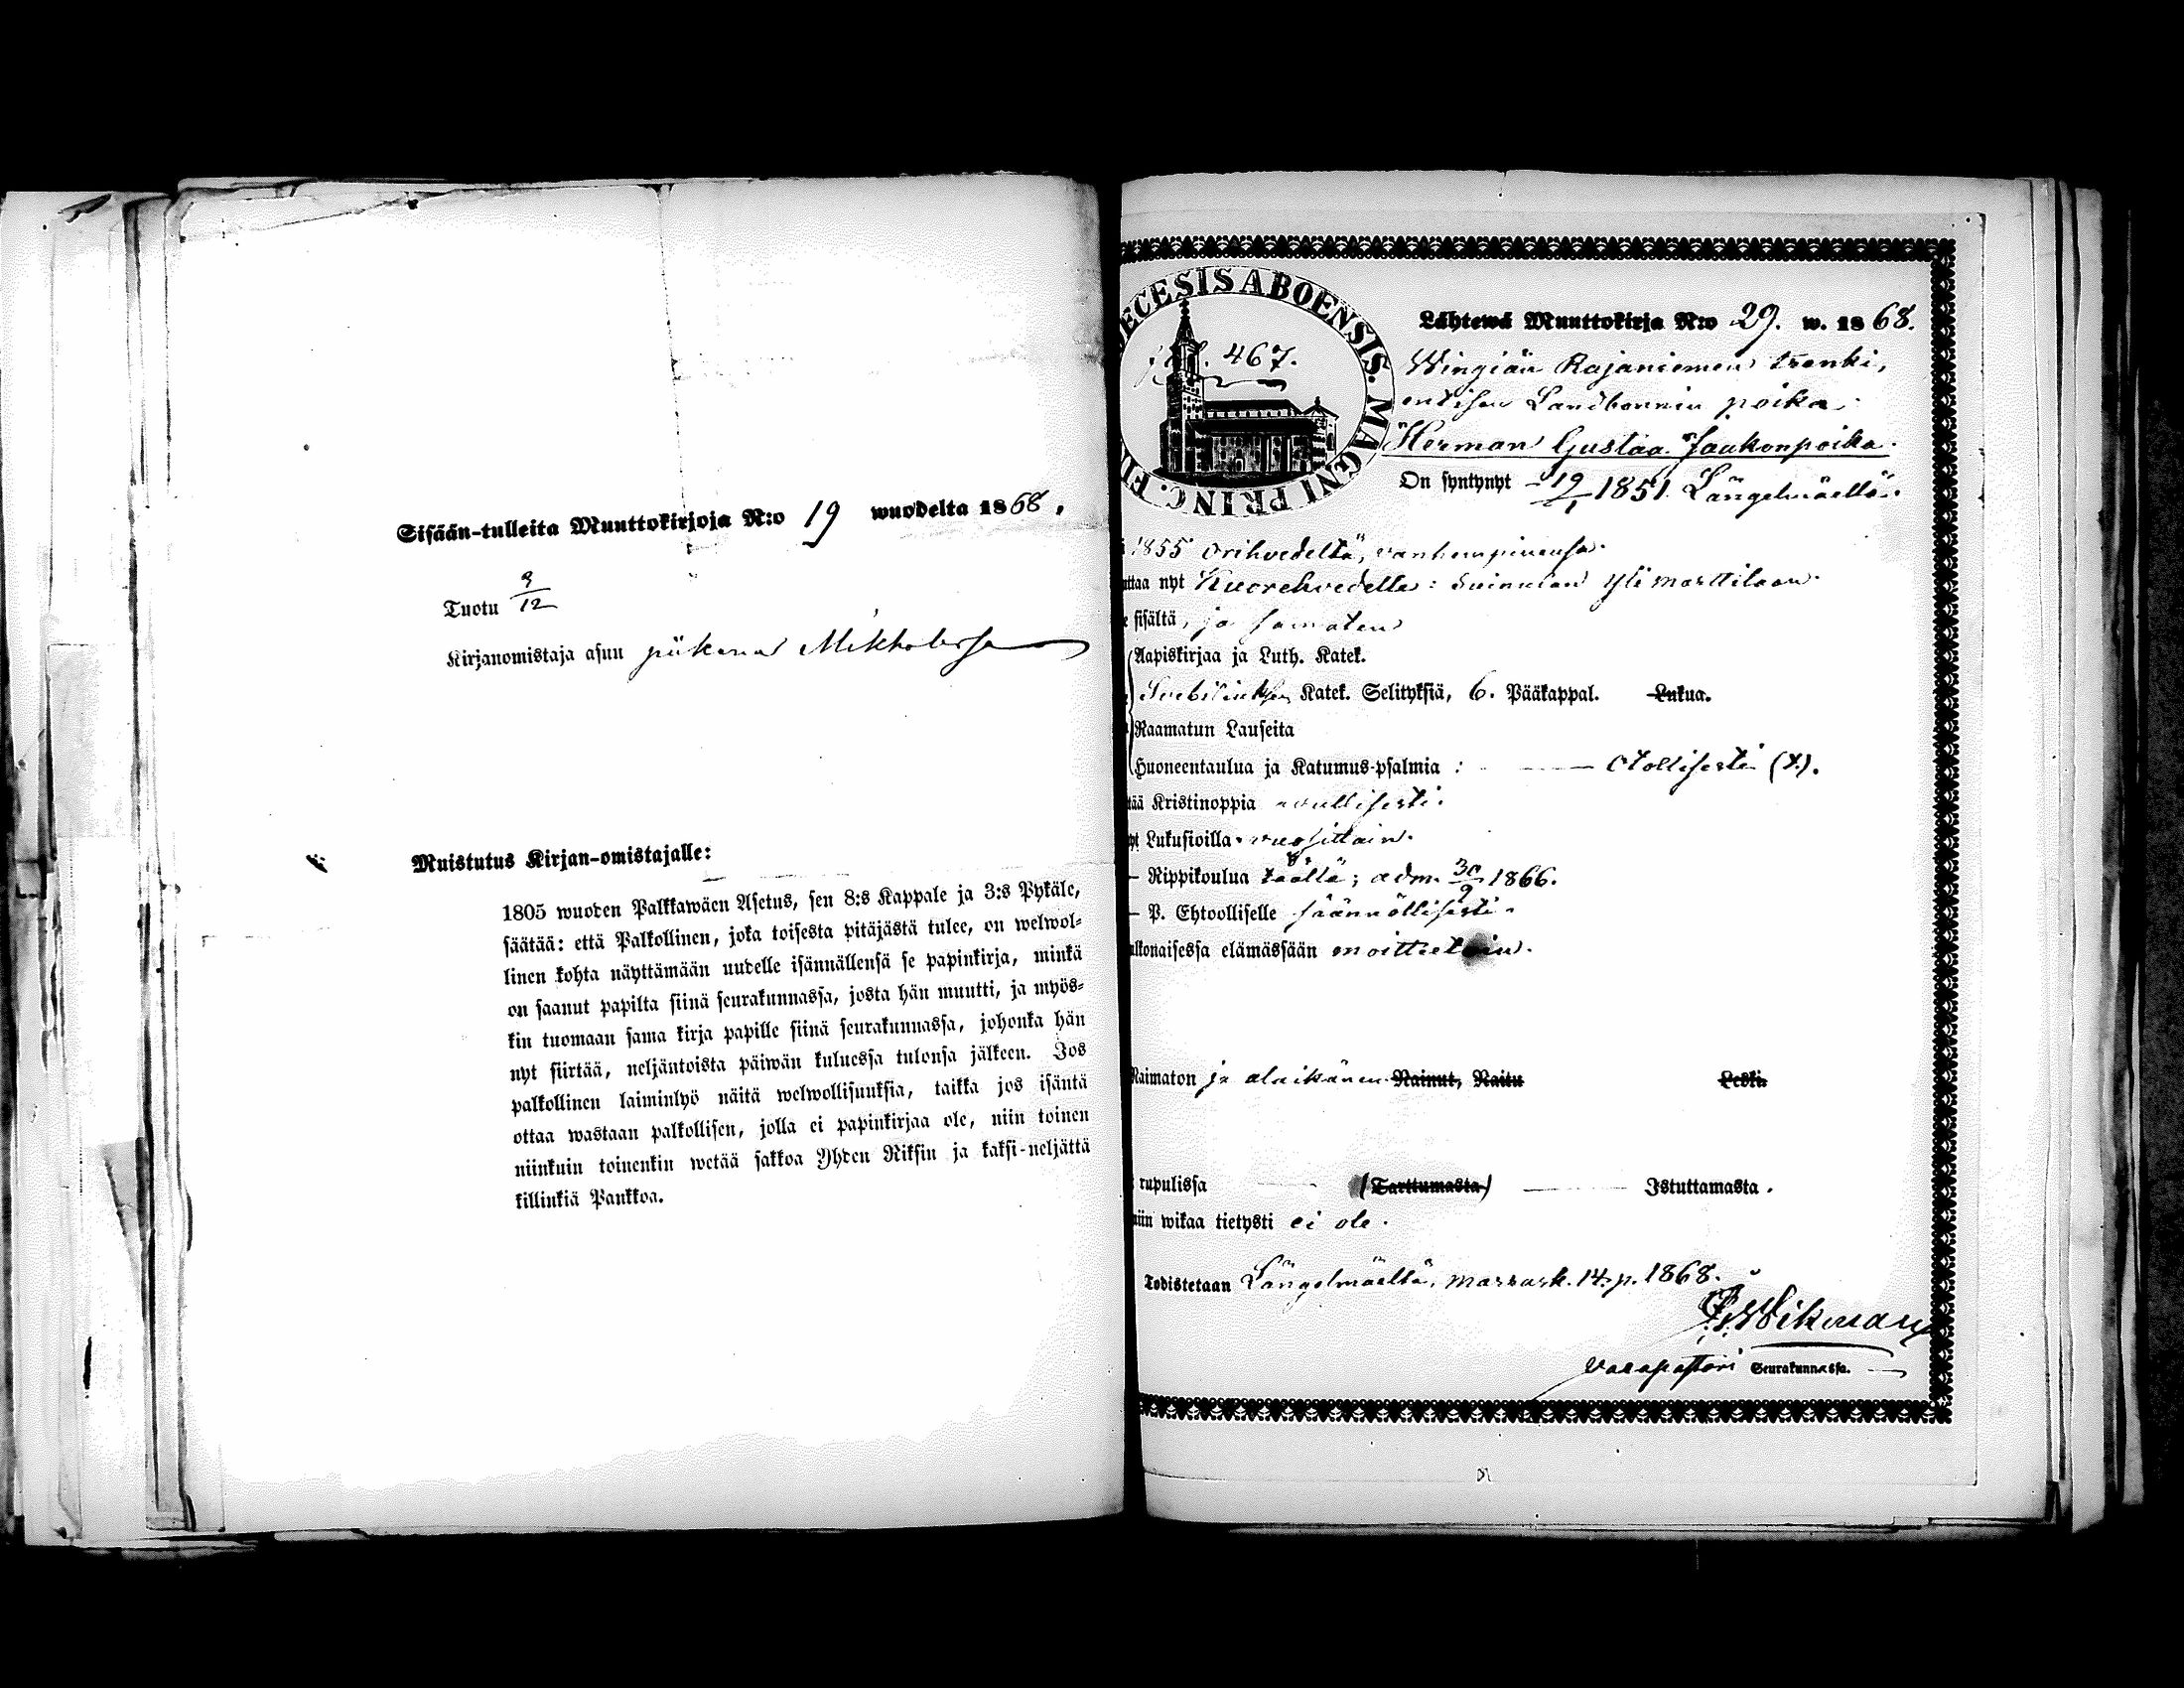 Sisään-tulleita Muuttokirjoja N:o 19 wuodelta 1868.
Tuotu 9/12
Kirjanomistaja asuu piikana
Muistutus Kirjan-omistajalle:
1805 wuoden Palkkawäen Asetus, sen 8:s Kappale ja 3:s Pykäle,
säätää: että Palkollinen, joka toisesta pitäjästä tulee, on welwol-
linen kohta näyttämään uudelle isännällensä se papinkirja, minkä
on saanut papilta siinä seurakunnassa, josta hän muutti, ja myös-
kin tuomaan sama kirja papille siinä seurakunnassa, johonka hän
nyt siirtää, neljäntoista päiwän kuluessa tulonsa jälkeen. Jos
palkollinen laiminlyö näitä welwollisuuksia, taikka jos isäntä
ottaa wastaan palkollisen, jolla ei papinkirjaa ole, niin toinen
niinkuin toinenkin wetää sakkoa Yhden Riksin ja kaksi-neljättä
killinkiä Pankkoa.
ECESIS ABOENSIS. MAGNI PRINC. FI
467.
Lähtewä Muuttokirja N:o 29. w. 1868.
Wingiän Rajaniemen trenki,
entisen Landbonnin poika
Herman Gustaa Jaakonpoika.
On syntynyt 19/1 1851 Längelmäellä.
1855 Orihvedeltä, vanhempinensa.
uttaa nyt Kuorehvedelle: Suinulan Ylimarttilaan.
sisältä, ja
Aapiskirjaa ja Luth. Katek.
Svebiliuksen Katek. Selityksiä, 6. Pääkappal. Lukua.
Raamatun Lauseita
Huoneentaulua ja Katumus-psalmia : otollisesti (x).
tää Kristinoppia
yt Lukusioilla vuosittain.
– Rippikoulua täällä; adm. 30/9 1866.
– P. Ehtoolliselle säännöllisesti.
ulkonaisessa elämässään moitteetoin.
Naimaton ja alaikänen Nainut, Naitu Leski
rupulissa (Tarttumasta) Istuttamasta.
niin wikaa tietysti ei ole.
Todistetaan Längelmäeltä, marrask. 14. p. 1868.
Wikman
varapastori Seurakunnassa.